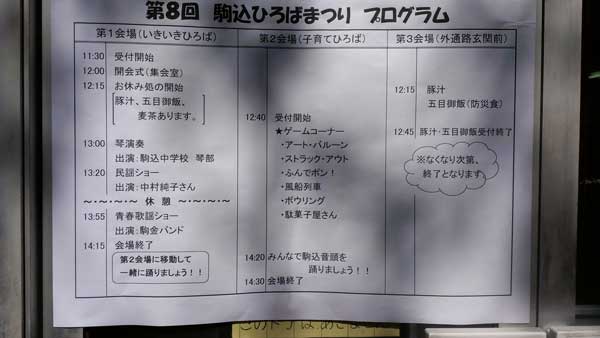 第8回 駒込ひろばまつり プログラム
第1会場(いきいきひろば)
11:30 受付開始
12:00 開会式(集会室)
12:15 お休み処の開始
豚汁、五目御飯、
麦茶あります。
13:00 琴演奏
出演:駒込中学校 琴部
13:20 民謡ショー
出演:中村純子さん
～・～・～・～ 休 憩 ～・～・～・～
13:55 青春歌謡ショー
出演:駒金バンド
14:15 会場終了
第2会場に移動して
一緒に踊りましょう!!
第2会場(子育てひろば)
12:40 受付開始
★ゲームコーナー
・アート・バルーン
・ストラック・アウト
・ふんでポン!
・風船列車
・ボウリング
・駄菓子屋さん
14:20 みんなで駒込音頭を
踊りましょう!!
14:30 会場終了
第3会場(外通路玄関前)
12:15 豚汁
五目御飯(防災食)
12:45 豚汁・五目御飯受付終了
※なくなり次第、
終了となります。